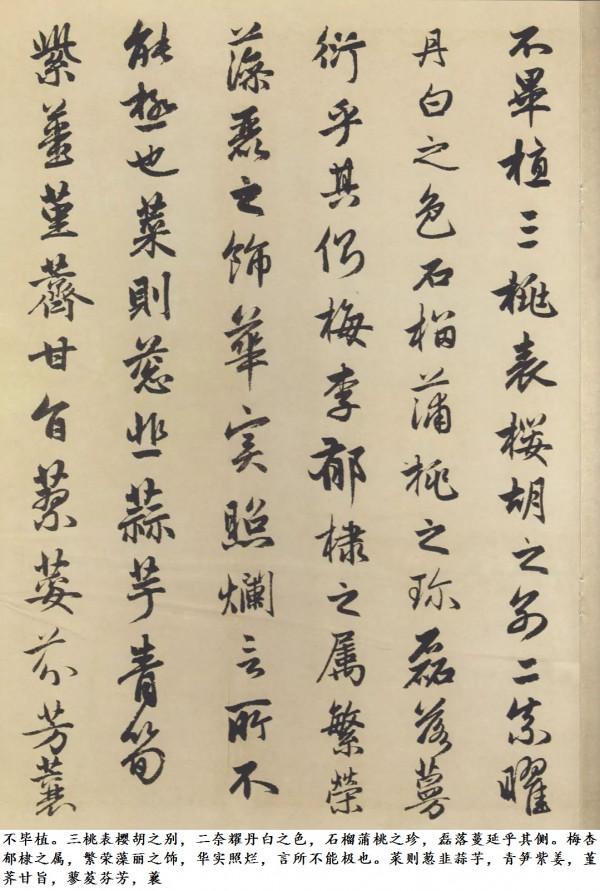 不畢植三桃表櫻胡之别二柰曜
丹白之色石榴蒲桃之珍磊落蔓
衍乎其側梅李郁棣之属繁榮
藻麗之飾華实照爛言所不
能極也菜則葱韭蒜芋青筍
紫薑堇薺甘旨蓼荾芬芳蘘
不毕植。三桃表樱胡之别，二奈耀丹白之色，石榴蒲桃之珍，磊落蔓延乎其侧。梅杏
郁棣之属，繁荣藻丽之饰，华实照烂，言所不能极也。菜则葱韭蒜芋，青笋紫姜，堇
荠甘旨，蓼荾芬芳，蘘